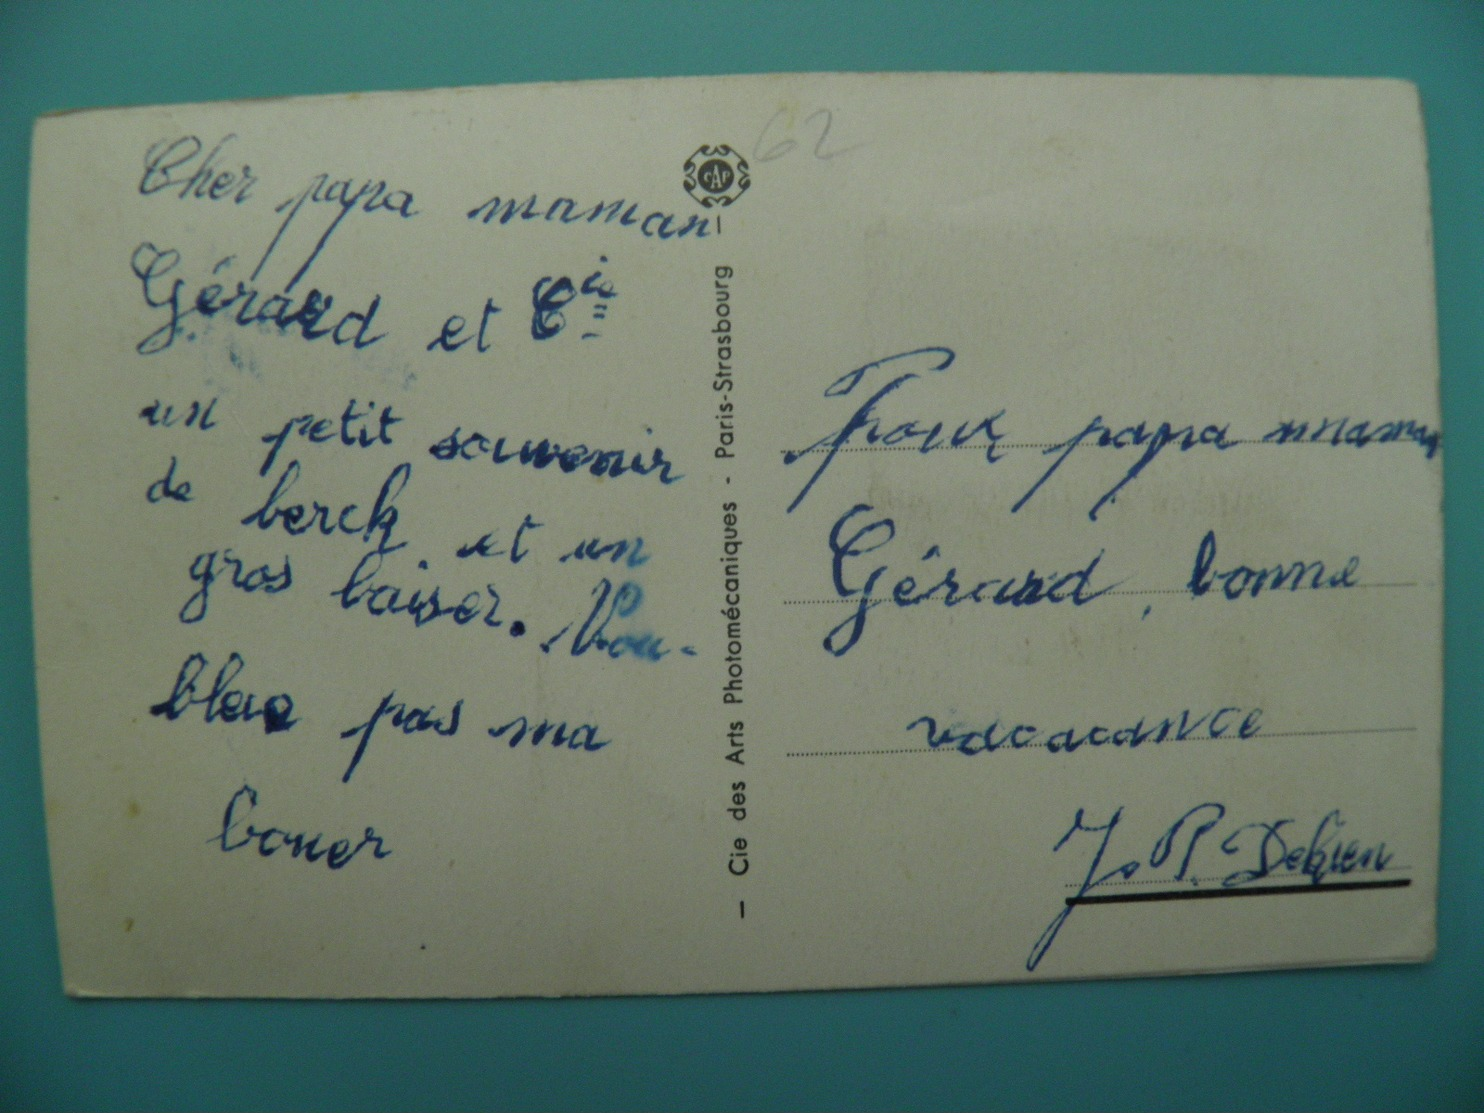 Cher papa maman
Gérard et Cie
un petit souvenir
de berck et un
gros baiser. Nou-
bleie pas ma
bouer
62
CAP
— Cie des Arts Photomécaniques - Paris-Strasbourg —
Pour papa mmaman
Gérard, bonne
vacacance
J. P. Debien